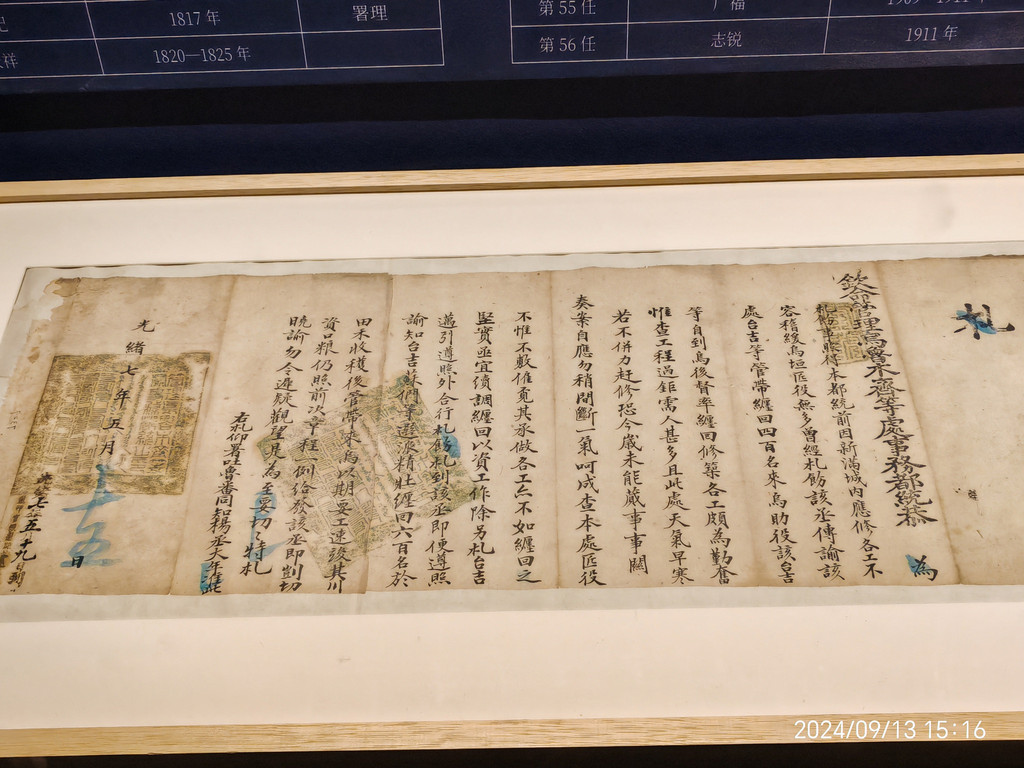 1817 年
署理
祥
1820—1825 年
第 55 任
广福
1909—1911 年
第 56 任
志锐
1911 年
札
欽命幫理烏魯木齊等處事務都統恭
為
札飭事照得本都統前因新滿城內應修各工不
容稽緩烏垣匠役無多曾經札飭該丞傳諭該
處台吉等管帶纏回四百名來烏助役該台吉
等自到烏後督率纏回修築各工頗為勤奮
惟查工程過鉅需人甚多且此處天氣早寒
若不併力赶修恐今歲未能蕆事事關
奏案自應勿稍間斷一氣呵成查本處匠役
不惟不敷僱覓其承做各工亦不如纏回之
堅實亟宜續調纏回以資工作除另札台吉
邁引遵照外合行札飭札到該丞即便遵照
諭知台吉 們 選派精壯纏回六百名於
田禾收穫後管帶來烏以期要工速竣其川
資口糧仍照前次章程一例給發該丞即剴切
曉諭勿令遲疑觀望是為至要切切特札
右札仰署吐魯番同知楊丞大年准此
光緒七年五月十五日
光緒七年五月十九日到
2024/09/13 15:16